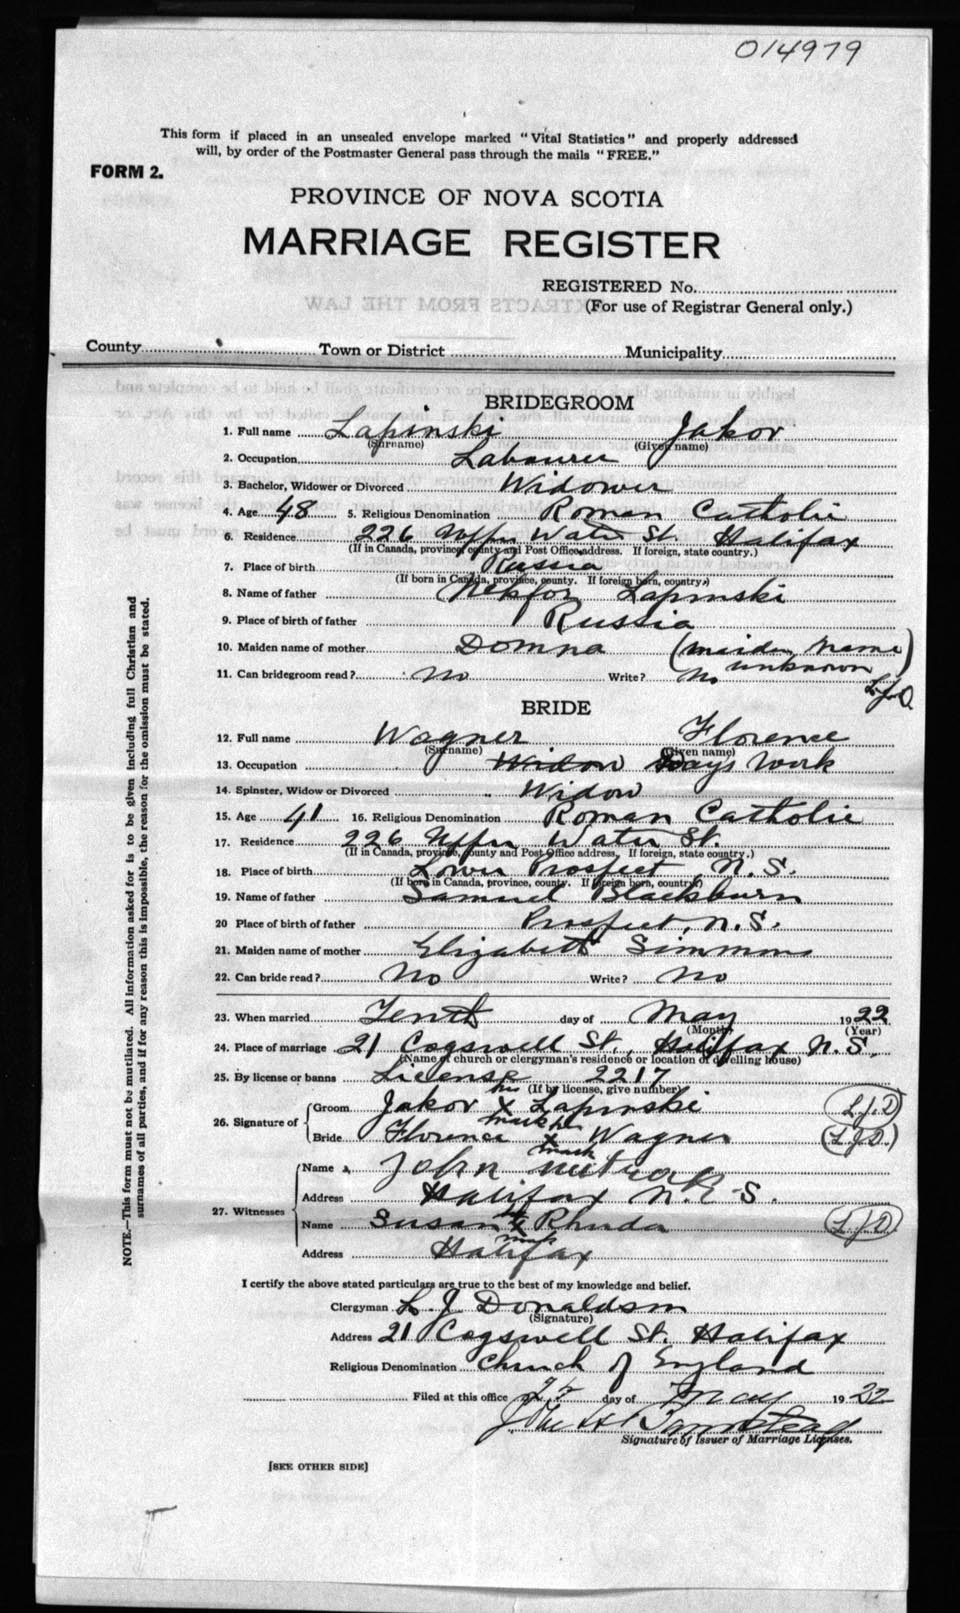 014979
This form if placed in an unsealed envelope marked "Vital Statistics" and properly addressed
will, by order of the Postmaster General pass through the mails "FREE."
FORM 2.
PROVINCE OF NOVA SCOTIA
MARRIAGE REGISTER
REGISTERED No.
(For use of Registrar General only.)
County Town or District Municipality
BRIDEGROOM
1. Full name Lapinski Jakov
(Surname) (Given name)
2. Occupation Labourer
3. Bachelor, Widower or Divorced Widower
4. Age 48 5. Religious Denomination Roman Catholic
6. Residence 226 Upper Water St. Halifax
(If in Canada, province, county and Post Office address. If foreign, state country.)
7. Place of birth Russia
(If born in Canada, province, county. If foreign born, country.)
8. Name of father Lapinski
9. Place of birth of father Russia
10. Maiden name of mother Domna (maiden name
unknown)
11. Can bridegroom read? No Write? No
L.J.D.
BRIDE
12. Full name Wagner Florence
(Surname) (Given name)
13. Occupation Widow Days Work
14. Spinster, Widow or Divorced Widow
15. Age 41 16. Religious Denomination Roman Catholic
17. Residence 226 Upper Water St.
(If in Canada, province, county and Post Office address, If foreign, state country.)
18. Place of birth Lower Prospect, N.S.
(If born in Canada, province, county. If foreign born, country)
19. Name of father Samuel Blackburn
20 Place of birth of father Prospect, N.S.
21. Maiden name of mother Elizabeth Simmons
22. Can bride read? No Write? No
23. When married Tenth day of May 1922
(Month) (Year)
24. Place of marriage 21 Cogswell St., Halifax N.S.
(Name of church or clergyman's residence or location of dwelling house)
25. By license or banns License 2217
(If by license, give number)
26. Signature of
Groom Jakov his X mark Lapinski L.J.D.
Bride Florence her X mark Wagner L.J.D.
27. Witnesses
Name John
Address Halifax N.S.
Name Susan her X mark Rhuda L.J.D.
Address Halifax
I certify the above stated particulars are true to the best of my knowledge and belief.
Clergyman L. J. Donaldson
(Signature)
Address 21 Cogswell St. Halifax
Religious Denomination Church of England
Filed at this office day of May 1922
Signature of Issuer of Marriage Licenses.
[SEE OTHER SIDE]
NOTE.—This form must not be mutilated. All information asked for is to be given including full Christian and
surnames of all parties, and if for any reason this is impossible, the reason for the omission must be stated.